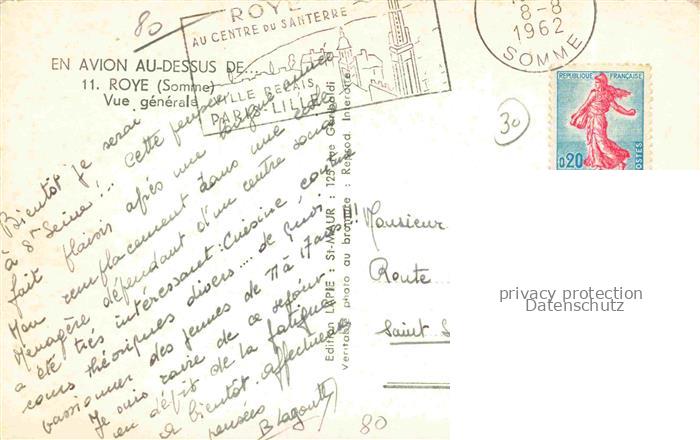 80
ROYE
AU CENTRE DU SANTERRE
VILLE RELAIS
PARIS-LILLE
8-8
1962
SOMME
EN AVION AU-DESSUS DE...
11. ROYE (Somme)
Vue générale
REPUBLIQUE FRANÇAISE
0,20
POSTES
30
Bientôt je serai
à St Seine !... Cette pensée
fait plaisir après une longue année
Mon remplacement dans une école
Ménagère dépendant d'un centre social
a été très intéressant : Cuisine, couture
cours théoriques divers.... de quoi
passionner des jeunes de 11 à 17 ans !!!
Je suis ravie de ce séjour
en dépit de la fatigue
A bientôt. Affectueuses
pensées
B Lagoutte
Edition LAPIE : St-MAUR : 125, rue Garibaldi
Véritable photo au bromure : Reprod. Interdite
Monsieur
Route
Saint S
80
privacy protection
Datenschutz